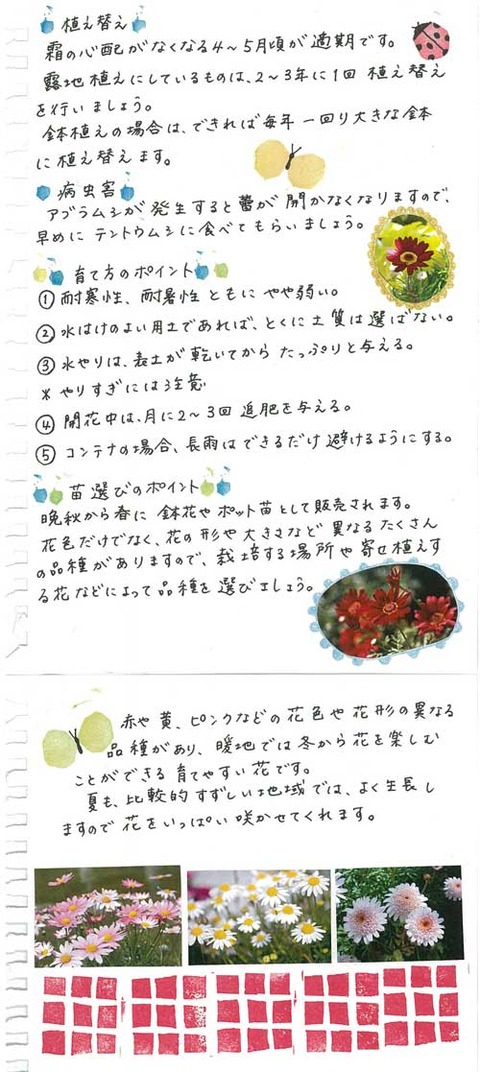 植え替え
霜の心配がなくなる4～5月頃が適期です。
露地植えにしているものは、2～3年に1回 植え替え
を行いましょう。
鉢植えの場合は、できれば毎年 一回り大きな鉢
に植え替えます。
病虫害
アブラムシが発生すると蕾が開かなくなりますので、
早めに テントウムシに食べてもらいましょう。
育て方のポイント
① 耐寒性、耐暑性 ともに やや弱い。
② 水はけのよい用土であれば、とくに土質は選ばない。
③ 水やりは、表土が乾いてから たっぷりと与える。
* やりすぎには注意
④ 開花中は、月に2～3回 追肥を与える。
⑤ コンテナの場合、長雨はできるだけ避けるようにする。
苗選びのポイント
晩秋から春に 鉢花やポット苗として販売されます。
花色だけでなく、花の形や大きさなど 異なるたくさん
の品種がありますので、栽培する場所や寄せ植えす
る花などによって品種を選びましょう。
赤や黄、ピンクなどの花色や花形の異なる
品種があり、暖地では冬から花を楽しむ
ことができる 育てやすい花です。
夏も、比較的すずしい地域では、よく生長し
ますので 花をいっぱい咲かせてくれます。